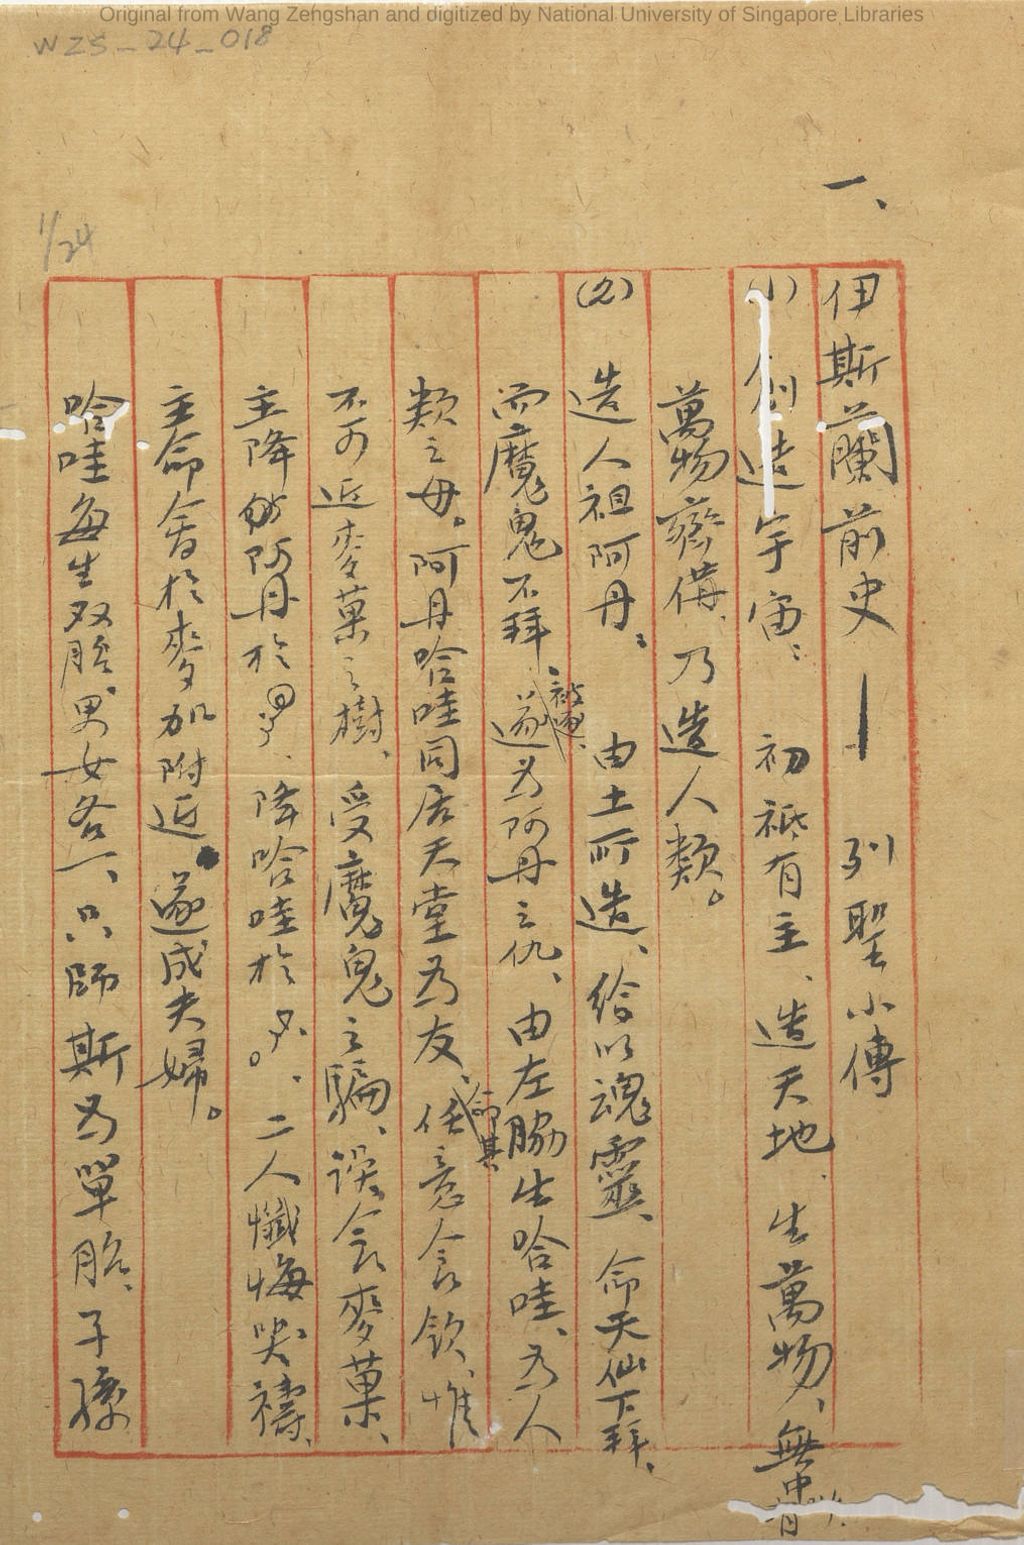 Original from Wang Zengshan and digitized by National University of Singapore Libraries
WZS_24_018
1/24
一、
伊斯蘭前史——列聖小傳
(1) 創造宇宙: 初祗有主、造天地、生萬物、無中有
萬物齊備、乃造人類。
(2) 造人祖阿丹: 由土所造、給以魂靈、命天仙下拜、
而魔鬼不拜、被逐、遂為阿丹之仇、由左脇生哈哇、為人
類之母。阿丹哈哇同居天堂為友、命其任意食飲、惟
不可近麥菓之樹、受魔鬼之騙、誤食麥菓、
主降阿丹於 、降哈哇於 。二人懺悔哭禱、
主命會於麥加附近。遂成夫婦。
哈哇每生双胎、男女各一、只師斯為單胎、子孫